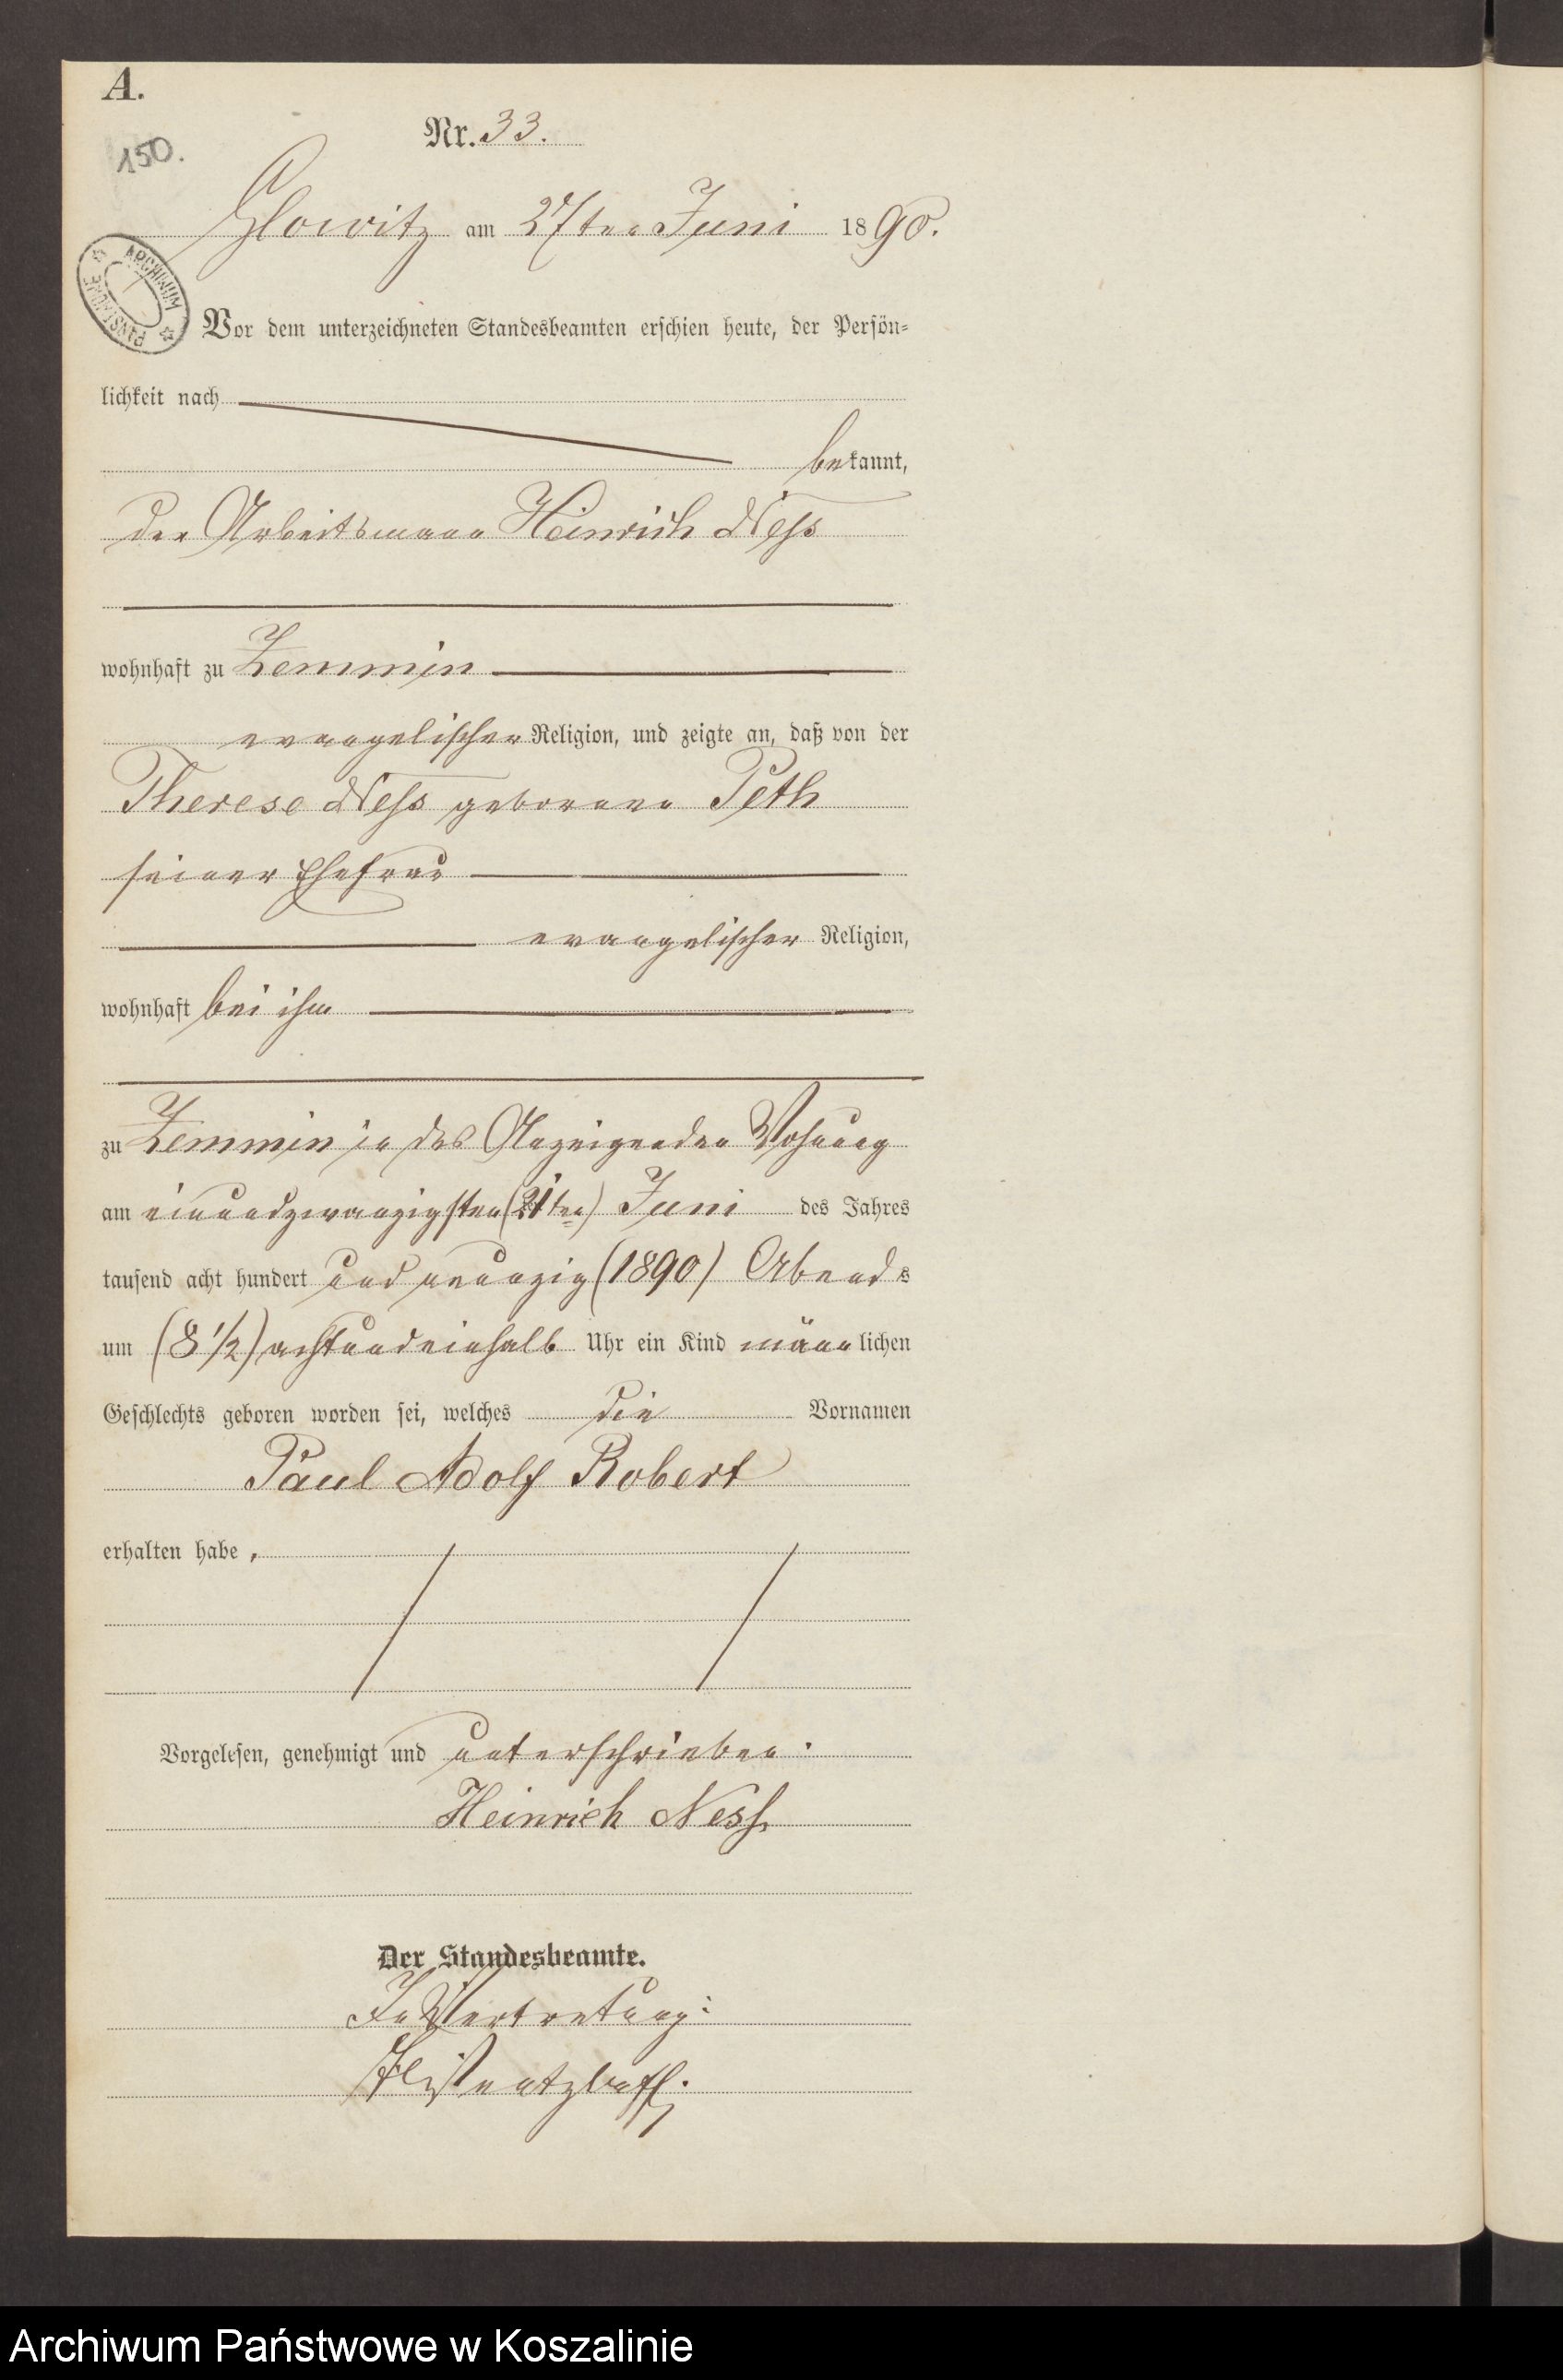 A.
Nr. 33.
150.
Glowitz am 27ten Juni 1890.
ARCHIWUM PAŃSTWOWE
Vor dem unterzeichneten Standesbeamten erschien heute, der Persön-
lichkeit nach
bekannt,
der Arbeitsmann Heinrich Neß
wohnhaft zu Zemmin
evangelischer Religion, und zeigte an, daß von der
Therese Neß geborenen Peth
seiner Ehefrau
evangelischer Religion,
wohnhaft bei ihm
zu Zemmin in des Anzeigenden Wohnung
am einundzwanzigsten (21ten) Juni des Jahres
tausend acht hundert und neunzig (1890) Abends
um (8 1/2) achtundeinhalb Uhr ein Kind männlichen
Geschlechts geboren worden sei, welches die Vornamen
Paul Adolf Robert
erhalten habe.
Vorgelesen, genehmigt und unterschrieben.
Heinrich Ness
Der Standesbeamte.
In Vertretung:
Archiwum Państwowe w Koszalinie